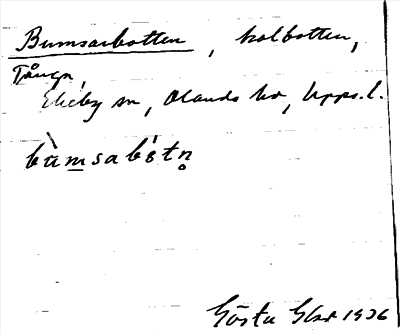 Bumsarbotten, kolbotten,
Tånga,
Ekeby sn, Olands hd, Upps. l.
bùmsabótn̥
Gösta 1926